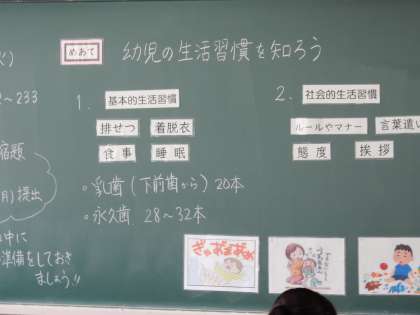 めあて 幼児の生活習慣を知ろう
1. 基本的生活習慣
排せつ 着脱衣
食事 睡眠
・乳歯(下前歯から)20本
・永久歯 28〜32本
2. 社会的生活習慣
ルールやマナー 言葉遣い
態度 挨拶
〜233
宿題
月)提出
中に
準備をしておき
ましょう!!